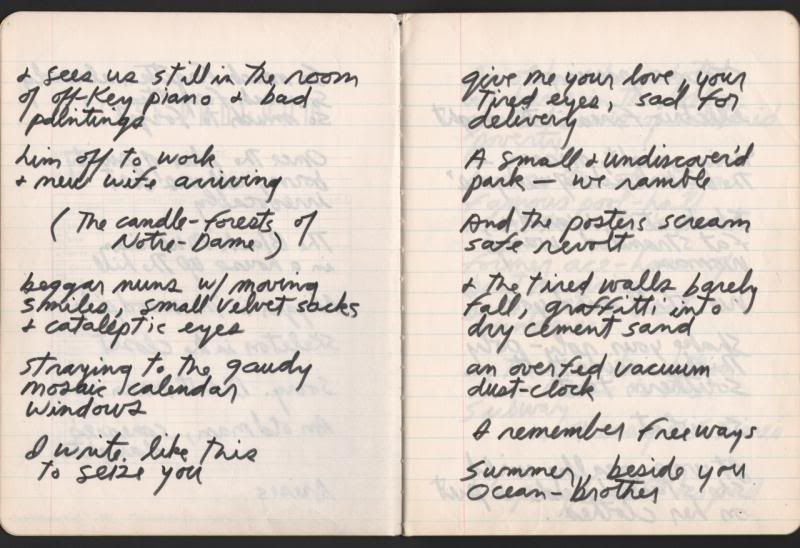 & sees us still in the room
of off-key piano & bad
paintings
him off to work
& new wife arriving
(The candle-forests of
Notre-Dame)
beggar nuns w/ moving
smiles, small velvet sacks
& cataleptic eyes
straying to the gaudy
mosaic calendar
windows
I write like this
to seize you
give me your love, your
Tired eyes, sad for
delivery
A small & undiscover'd
park — we ramble
And the posters scream
safe revolt
& the tired walls barely
fall, graffitti into
dry cement sand
an overfed vacuum
dust-clock
I remember freeways
Summer, beside you
Ocean-brother